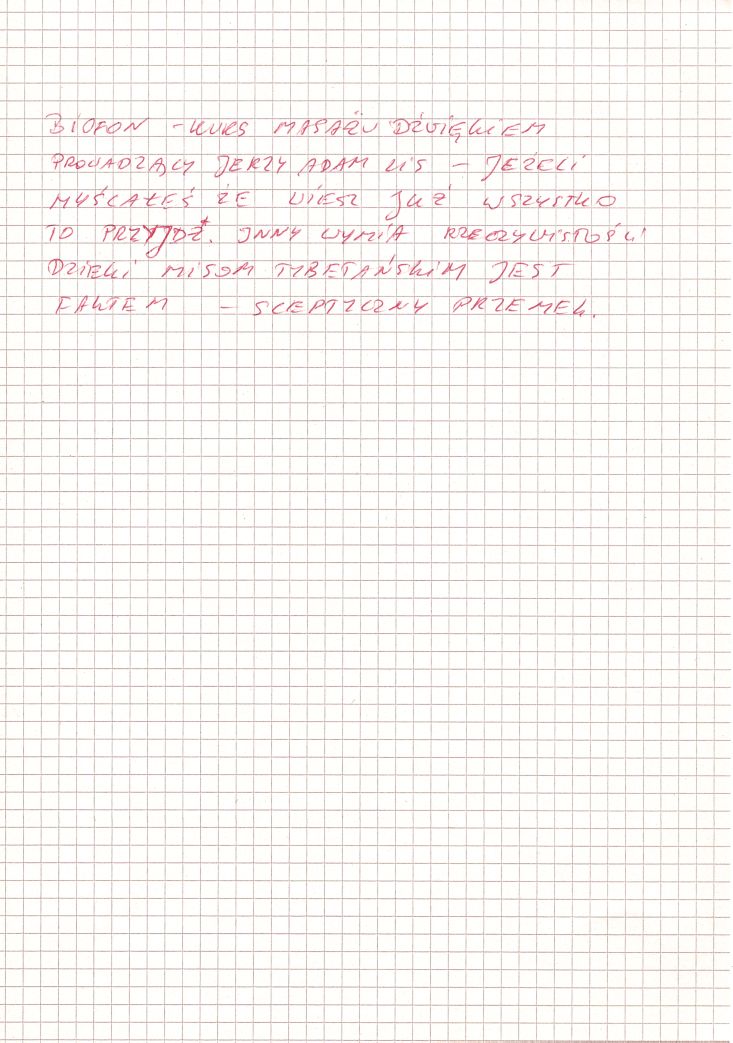 BIOFON - KURS MASAŻU DŹWIĘKIEM
PROWADZĄCY JERZY ADAM LIS - JEŻELI
MYŚLAŁEŚ ŻE WIESZ JUŻ WSZYSTKO
TO PRZYJDŹ. INNY WYMIA RZECZYWISTOŚCI
DZIEKI MISOM TYBETAŃSKIM JEST
FAKTEM - SCEPTYCZNY PRZEMEK.